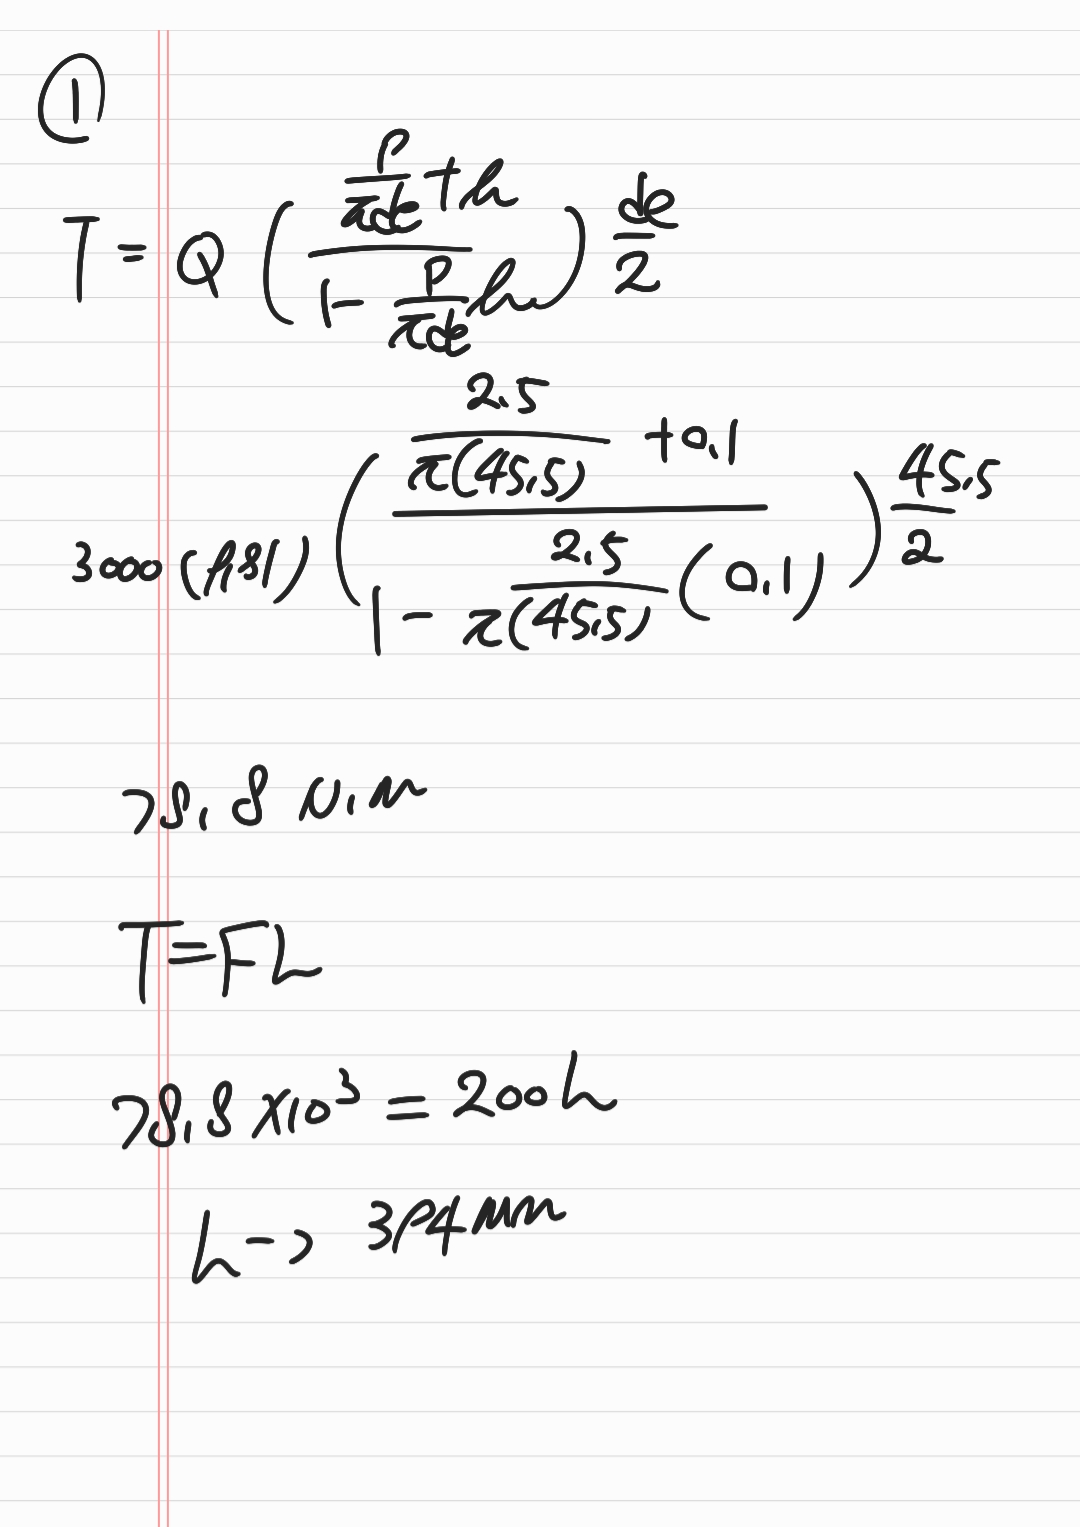 ①
T = Q ( (p/πde + h) / (1 - p/πde h) ) de/2
3000 (9.81) ( (2.5/π(45.5) + 0.1) / (1 - 2.5/π(45.5) (0.1)) ) 45.5/2
78.8 N.m
T = FL
78.8 x10³ = 200 L
L -> 394 mm